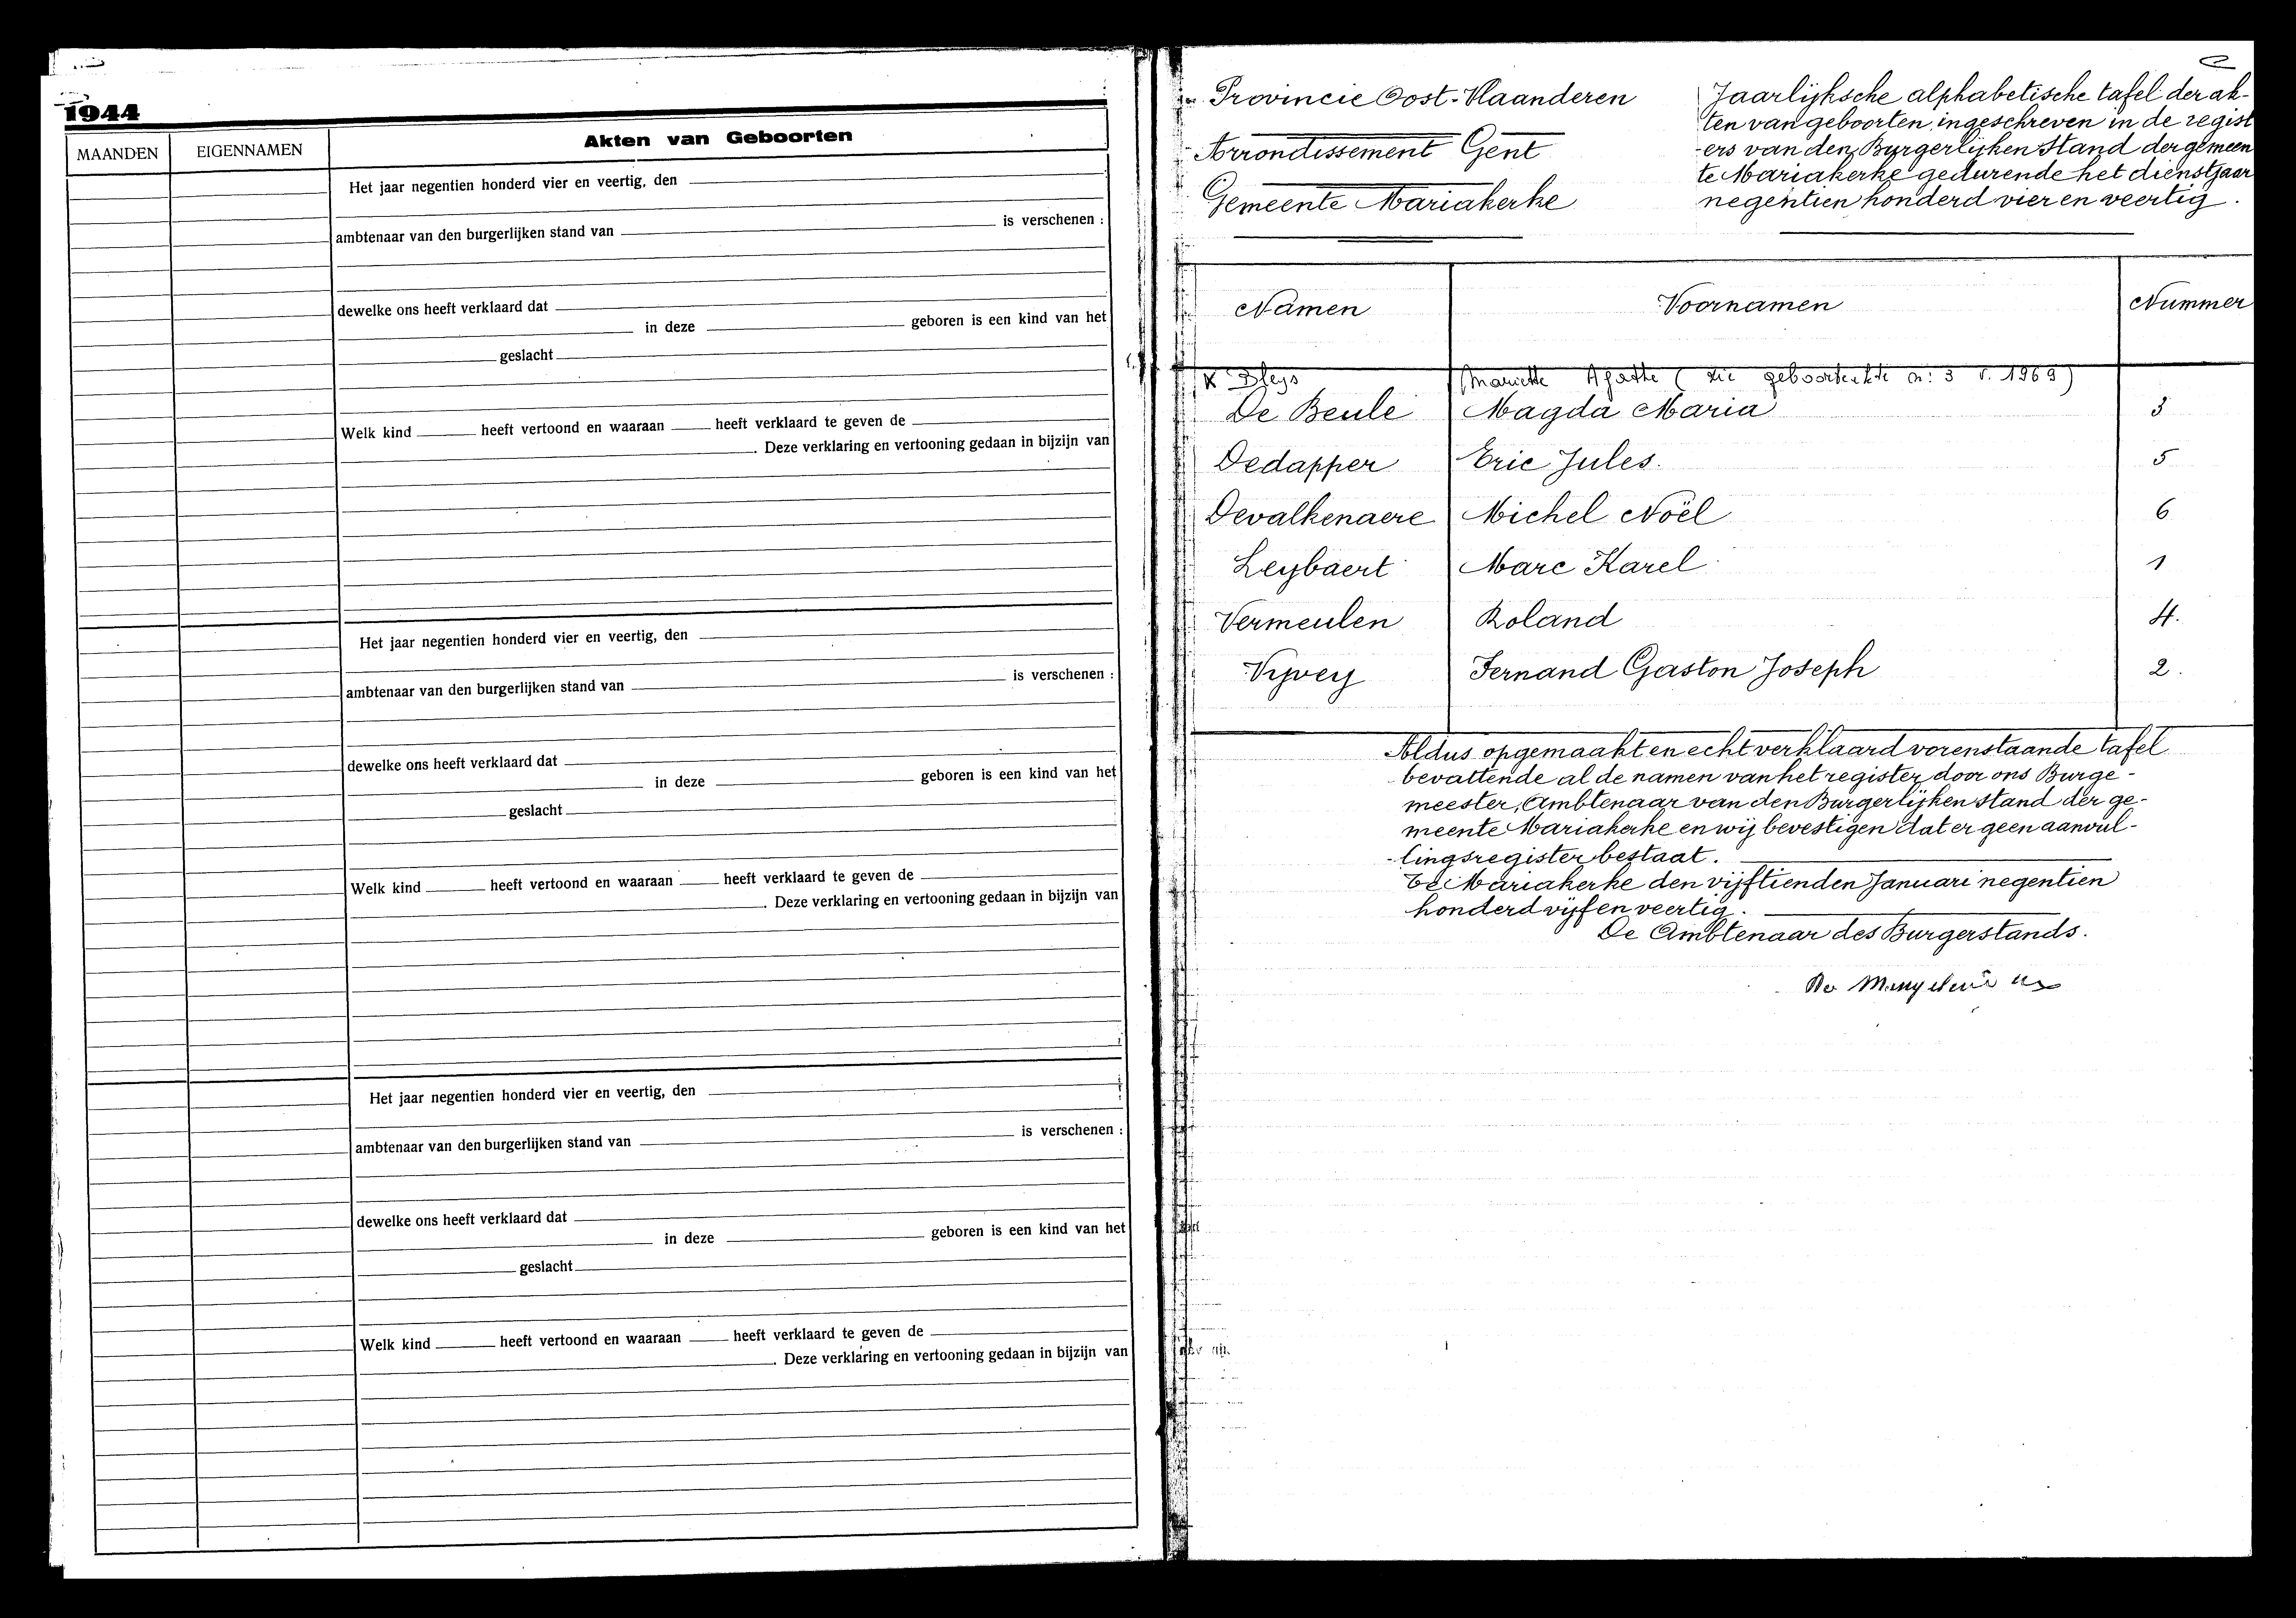 1944
Akten van Geboorten
MAANDEN
EIGENNAMEN
Het jaar negentien honderd vier en veertig, den
is verschenen :
ambtenaar van den burgerlijken stand van
dewelke ons heeft verklaard dat
in deze geboren is een kind van het
geslacht
Welk kind heeft vertoond en waaraan heeft verklaard te geven de
. Deze verklaring en vertooning gedaan in bijzijn van
Het jaar negentien honderd vier en veertig, den
is verschenen :
ambtenaar van den burgerlijken stand van
dewelke ons heeft verklaard dat
in deze geboren is een kind van het
geslacht
Welk kind heeft vertoond en waaraan heeft verklaard te geven de
. Deze verklaring en vertooning gedaan in bijzijn van
Het jaar negentien honderd vier en veertig, den
is verschenen :
ambtenaar van den burgerlijken stand van
dewelke ons heeft verklaard dat
in deze geboren is een kind van het
geslacht
Welk kind heeft vertoond en waaraan heeft verklaard te geven de
. Deze verklaring en vertooning gedaan in bijzijn van
Provincie Oost-Vlaanderen
Arrondissement Gent
Gemeente Mariakerke
Jaarlijksche alphabetische tafel der ak-
ten van geboorten, ingeschreven in de regist
-ers van den Burgerlijken Stand der gemeen
te Mariakerke gedurende het dienstjaar
negentien honderd vier en veertig.
Namen Voornamen Nummer
Mariette Agathe ( zie geboorteakte nr: 3 v. 1969)
De Beule Magda Maria 3
Dedapper Eric Jules. 5
Devalkenaere Michel Noël 6
Leybaert Marc Karel 1
Vermeulen Roland 4.
Vyvey Fernand Gaston Joseph 2.
Aldus opgemaakt en echt verklaard vorenstaande tafel
bevattende al de namen van het register door ons Burge-
meester, Ambtenaar van den Burgerlijken stand der ge-
meente Mariakerke en wij bevestigen dat er geen aanvul-
-lingsregister bestaat.
Te Mariakerke den vijftienden Januari negentien
honderd vijf en veertig.
De Ambtenaar des Burgerstands.